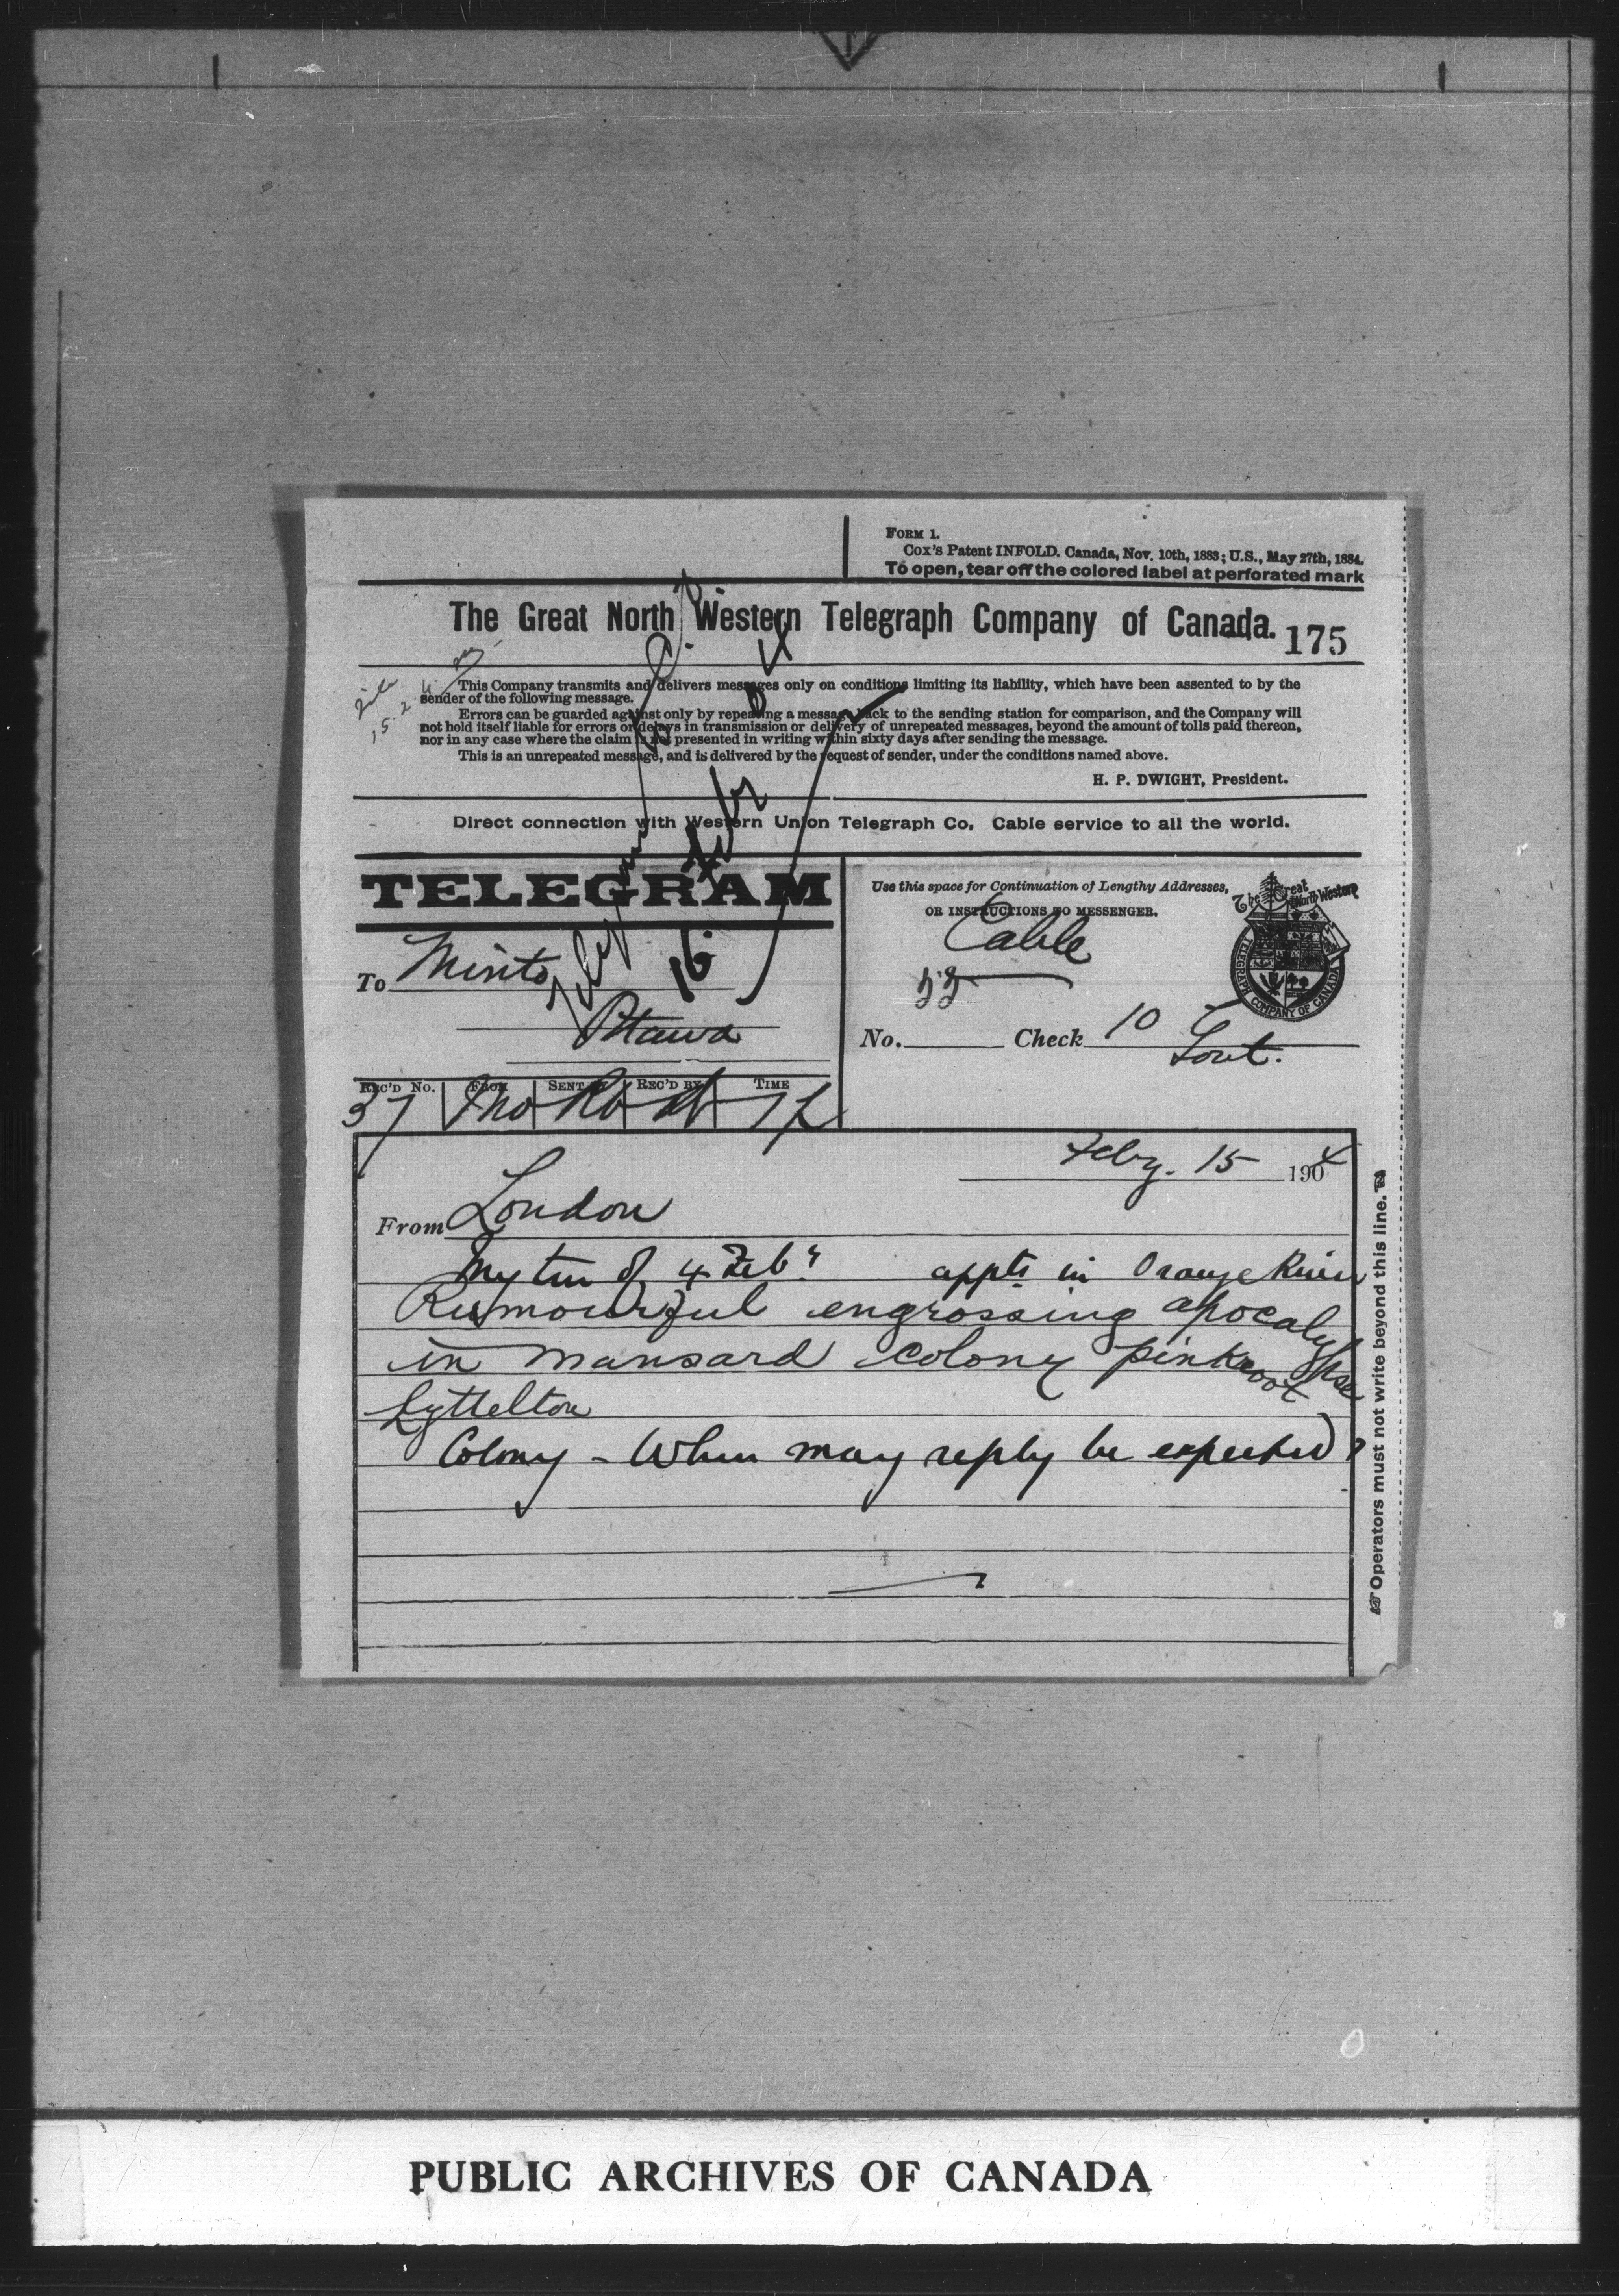 FORM 1.
Cox's Patent INFOLD. Canada, Nov. 10th, 1883; U.S., May 27th, 1884.
To open, tear off the colored label at perforated mark
The Great North Western Telegraph Company of Canada.
175
This Company transmits and delivers messages only on conditions limiting its liability, which have been assented to by the
sender of the following message.
Errors can be guarded against only by repeating a message back to the sending station for comparison, and the Company will
not hold itself liable for errors or delays in transmission or delivery of unrepeated messages, beyond the amount of tolls paid thereon,
nor in any case where the claim is not presented in writing within sixty days after sending the message.
This is an unrepeated message, and is delivered by the request of sender, under the conditions named above.
H. P. DWIGHT, President.
Direct connection with Western Union Telegraph Co. Cable service to all the world.
TELEGRAM
Use this space for Continuation of Lengthy Addresses,
OR INSTRUCTIONS TO MESSENGER.
The Great North Western
TELEGRAPH COMPANY OF CANADA
Cable
To Minto
16
Ottawa
No. Check 10
Govt.
REC'D No. FROM SENT BY REC'D BY TIME
37
Feby. 15 1904
From London
My tem of 4 Feby appts in Orange River
Rumourful engrossing apocalypse
in mansard colony pinkroot
Lyttelton
Colony - When may reply be expected?
Operators must not write beyond this line.
PUBLIC ARCHIVES OF CANADA